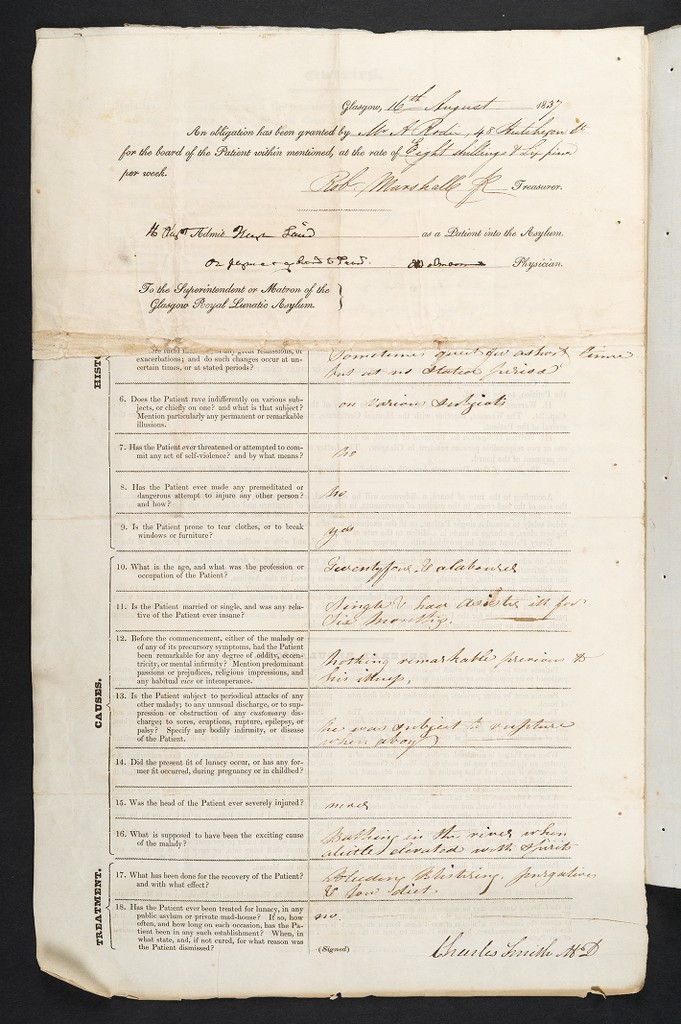 Glasgow, 16th August 1837
An obligation has been granted by Mr A Rodie, 48 Hutcheson St
for the board of the Patient within mentioned, at the rate of Eight Shillings & Six pence
per week.
Rob. Marshall Treasurer.
Admit as a Patient into the Asylum.
Physician.
To the Superintendent or Matron of the
Glasgow Royal Lunatic Asylum.
HISTO
exacerbations; and do such changes occur at un-
certain times, or at stated periods?
Sometimes quiet for a short time
but at no stated period
6. Does the Patient rave indifferently on various sub-
jects, or chiefly on one? and what is that subject?
Mention particularly any permanent or remarkable
illusions.
on various subjects
7. Has the Patient ever threatened or attempted to com-
mit any act of self-violence? and by what means?
no
8. Has the Patient ever made any premeditated or
dangerous attempt to injure any other person?
and how?
no
9. Is the Patient prone to tear clothes, or to break
windows or furniture?
yes
CAUSES.
10. What is the age, and what was the profession or
occupation of the Patient?
Twentyfour & a labourer
11. Is the Patient married or single, and was any rela-
tive of the Patient ever insane?
Single & had a sister ill for
Six Months.
12. Before the commencement, either of the malady or
of any of its precursory symptoms, had the Patient
been remarkable for any degree of oddity, eccen-
tricity, or mental infirmity? Mention predominant
passions or prejudices, religious impressions, and
any habitual vice or intemperance.
Nothing remarkable previous to
his illness,
13. Is the Patient subject to periodical attacks of any
other malady; to any unusual discharge, or to sup-
pression or obstruction of any customary dis-
charge; to sores, eruptions, rupture, epilepsy, or
palsy? Specify any bodily infirmity, or disease
of the Patient.
he was subject to rupture
when a boy
14. Did the present fit of lunacy occur, or has any for-
mer fit occurred, during pregnancy or in childbed?
15. Was the head of the Patient ever severely injured?
never
16. What is supposed to have been the exciting cause
of the malady?
Bathing in the river when
alittle elevated with spirits
TREATMENT.
17. What has been done for the recovery of the Patient?
and with what effect?
Bleeding Blistering, purgatives
& low diet
18. Has the Patient ever been treated for lunacy, in any
public asylum or private mad-house? If so, how
often, and how long on such occasion, has the Pa-
tient been in any such establishment? When, in
what state, and, if not cured, for what reason was
the Patient dismissed?
no.
(Signed)
Charles Smith MD